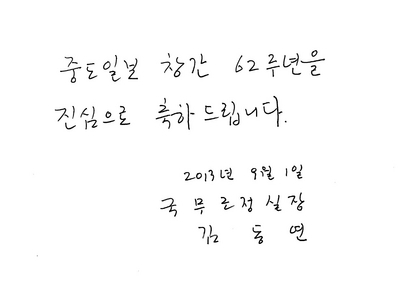 중도일보 창간 62주년을
진심으로 축하드립니다.
2013년 9월 1일
국무조정실장
김동연